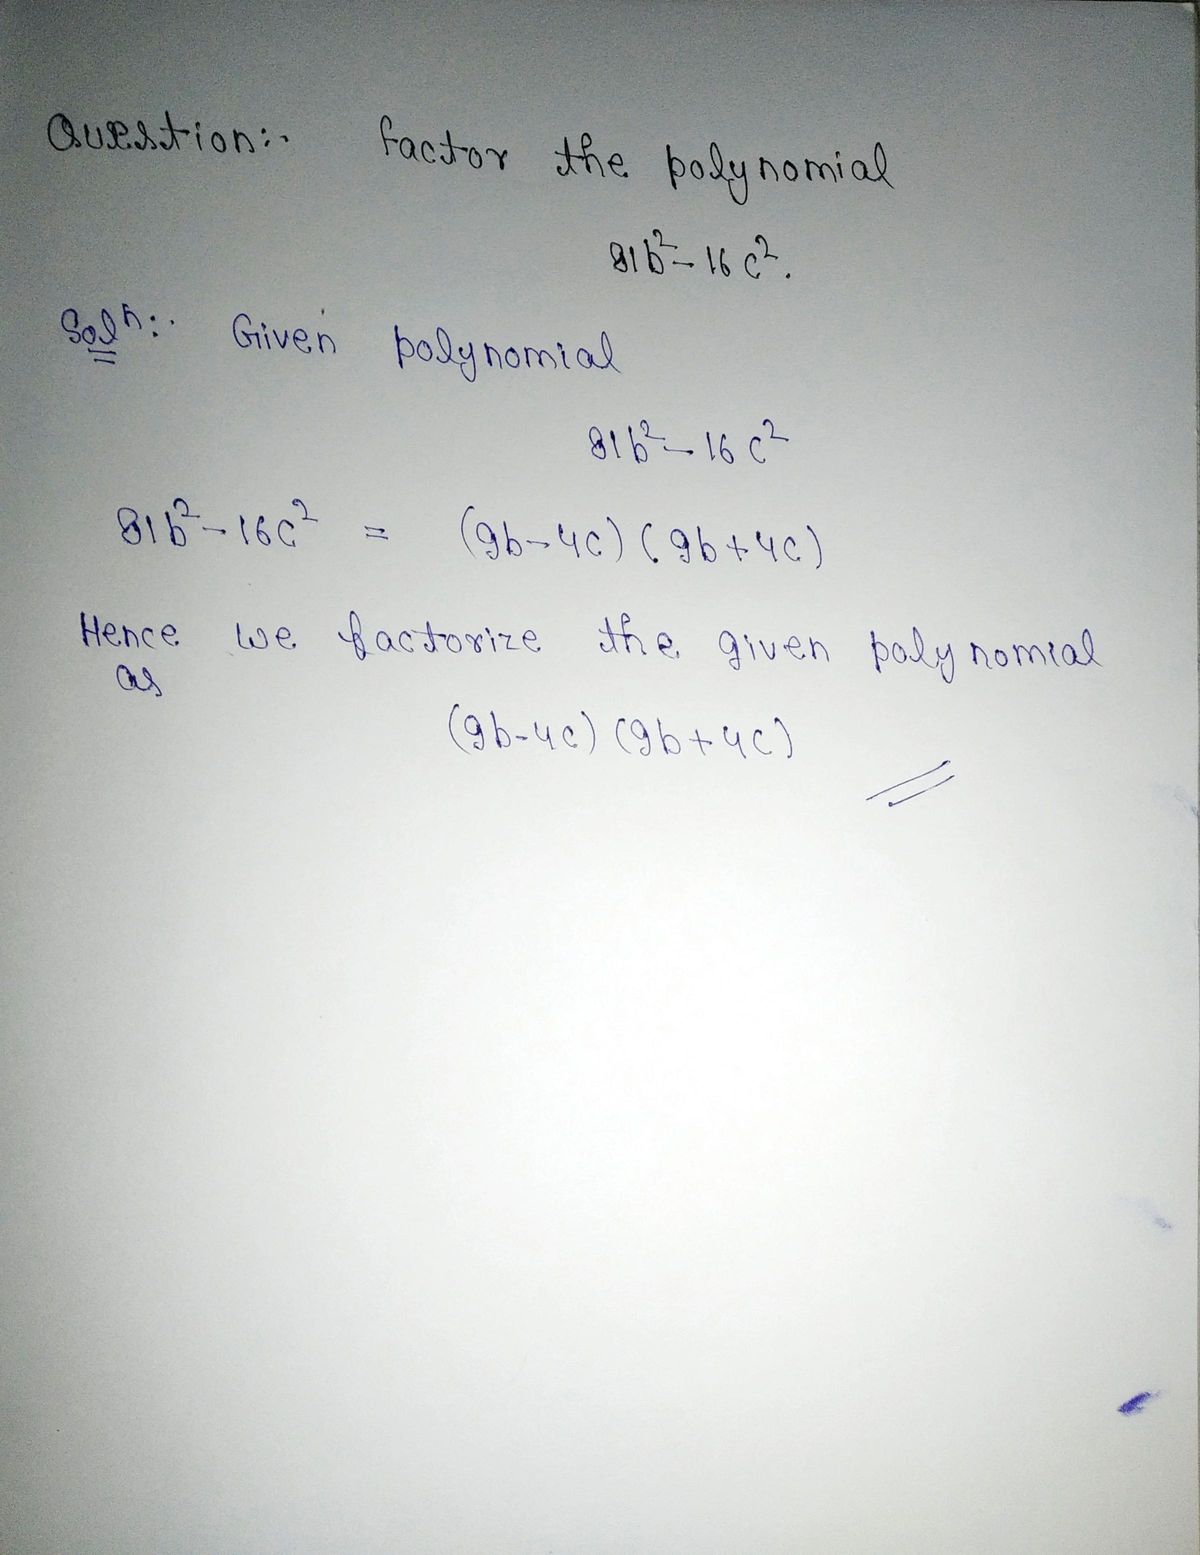 Question:- factor the polynomial
81b² - 16c².
Solⁿ:- Given polynomial
81b² - 16c²
81b² - 16c² = (9b-4c) (9b+4c)
Hence we factorize the given polynomial
as
(9b-4c) (9b+4c)